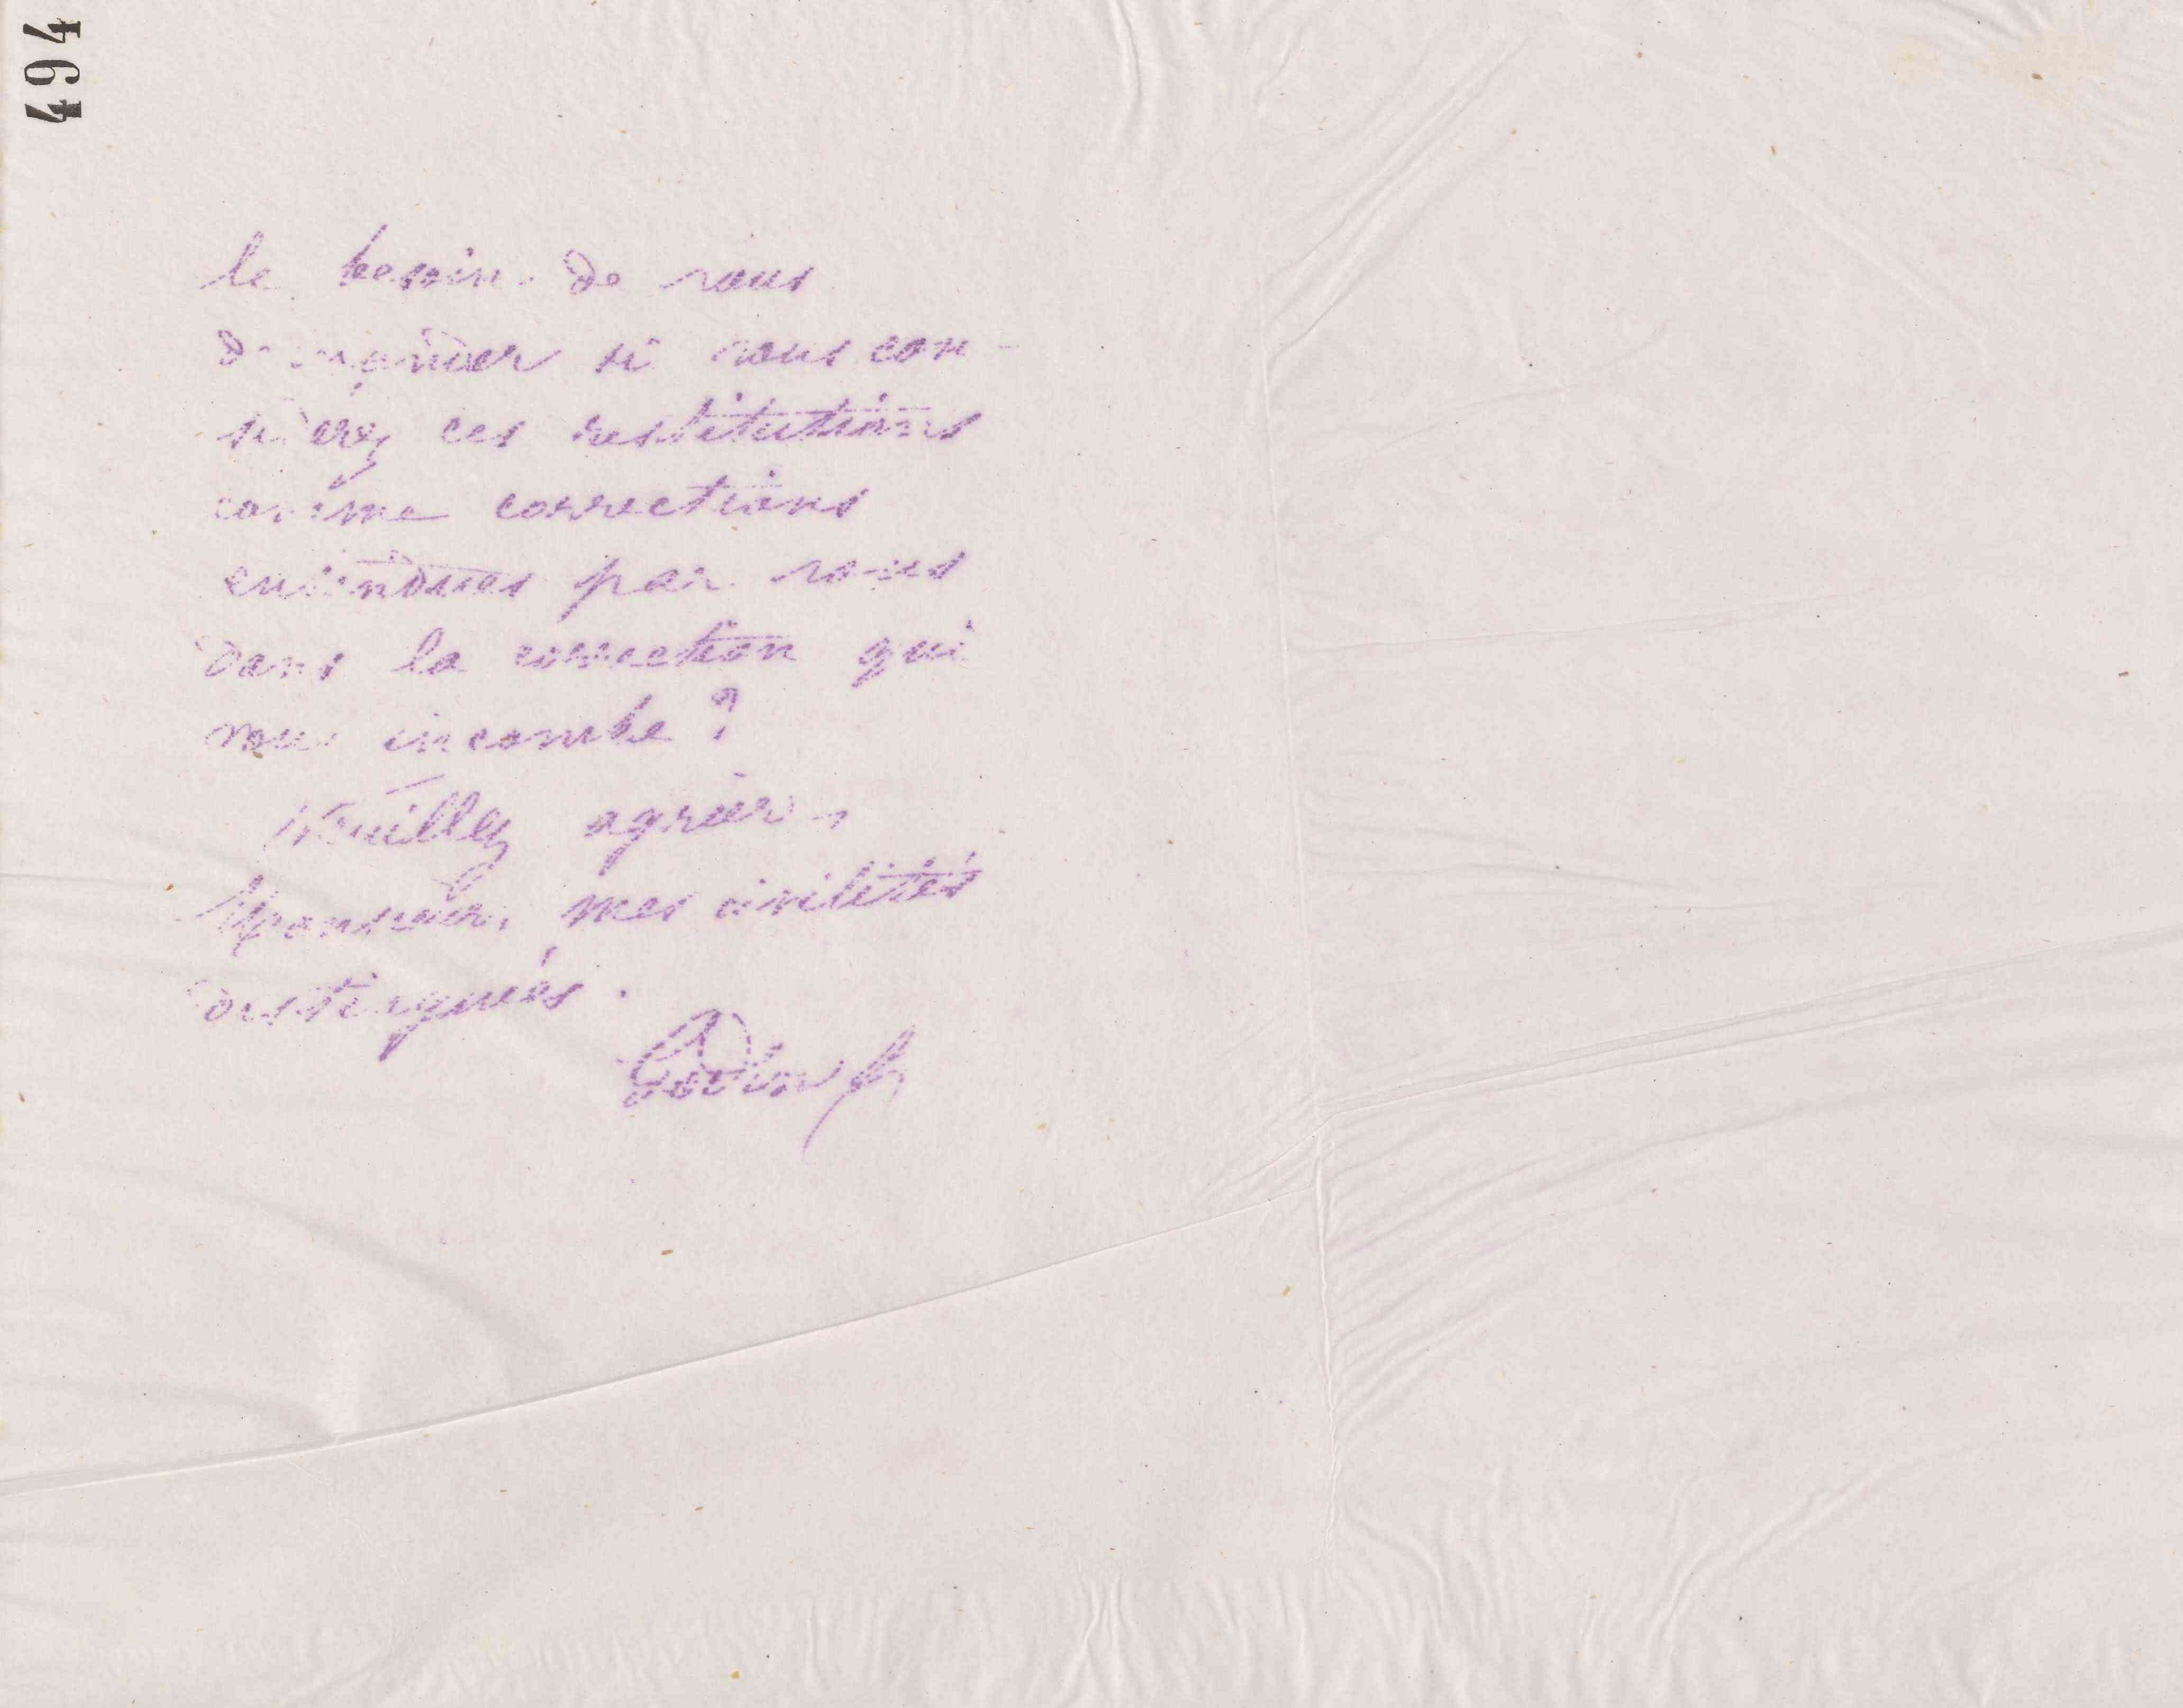 494
le besoin de vous
demander si vous con-
sidérez ces restitutions
comme corrections
entendues par vous
dans la correction qui
vous incombe ?
Veuillez agréer,
Monsieur, mes civilités
distinguées.
Godin